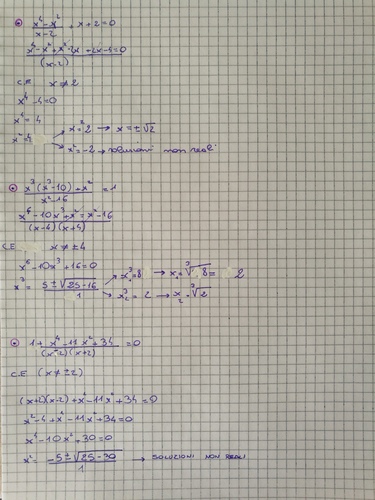 (x⁴-x²)/(x-2) + x+2=0
(x⁴-x²+x²-2x+2x-4=0)/(x-2)
C.E x≠2
x⁴-4=0
x⁴=4
x²=± → x²=2 → x=±√2
→ x²=-2 → soluzioni non reali
(x³(x³-10)+x²)/(x²-16) =1
(x⁶-10x³+x²=x²-16)/((x-4)(x+4))
C.E x≠±4
x⁶-10x³+16=0
x³=(5±√(25-16))/1 → x₁³=8 → x₁=³√8= 2
→ x₂³=2 → x₂=³√2
1+(x⁴-11x²+34)/((x-2)(x+2)) =0
C.E (x≠±2)
(x+2)(x-2)+x⁴-11x²+34=0
x²-4+x⁴-11x²+34=0
x⁴-10x²+30=0
x²=(-5±√(25-30))/1 → SOLUZIONI NON REALI